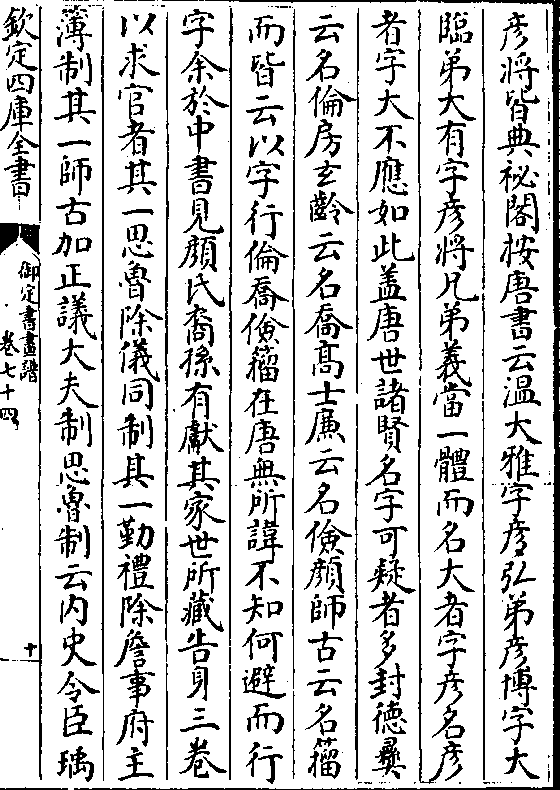 彥將皆典秘閣按唐書云温大雅字彥弘弟彥博字大
臨弟大有字彥將兄弟義當一體而名大者字彥名彥
者字大不應如此盖唐世諸賢名字可疑者多封德彞
云名倫房玄齡云名喬髙士廉云名儉顔師古云名籕
而皆云以字行倫喬儉籕在唐無所諱不知何避而行
字余於中書見顔氏裔孫有獻其家世所藏告身三卷
以求官者其一思魯除儀同制其一勤禮除詹事府主
薄制其一師古加正議大夫制思魯制云内史令臣瑀
欽定四庫全書
御定書畫譜
卷七十四
十